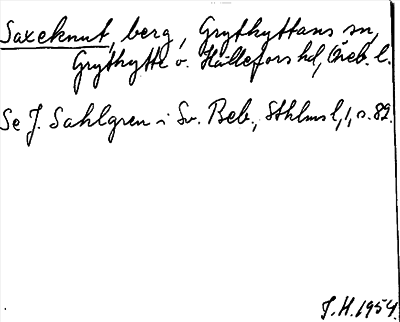 Saxeknut, berg, Grythyttans sn,
Grythytte o. Hällefors hd, Öreb. l.
Se J. Sahlgren i Sv. Beb., Sthlms l, 1, s. 89.
J.H. 1954.